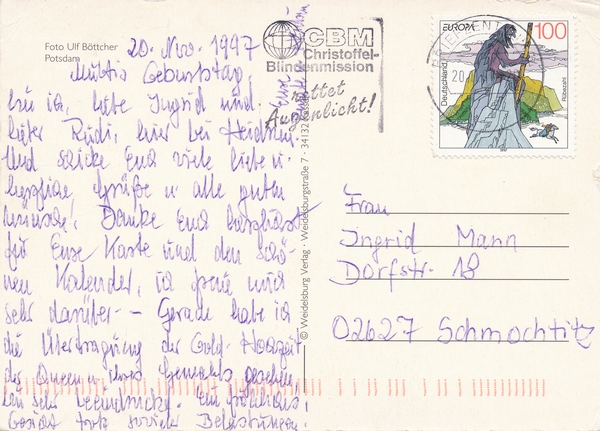 Foto Ulf Böttcher
Potsdam
20. Nov. 1997
Muttis Geburtstag.
bin ich, liebe Ingrid und
lieber Rudi, hier bei Heidrun.
Und schicke Euch viele liebe u.
herzliche Grüße u. alle guten
Wünsche! Danke Euch herzlichst
für Eure Karte und den schö-
nen Kalender, ich freue mich
sehr darüber – Gerade habe ich
die Übertragung der Gold-Hochzeit
der Queen u. ihres Gemahls gesehen,
bin sehr beeindruckt. Ein fröhliches
Gesicht trotz soviel Belastungen.
Eure
CBM
Christoffel-
Blindenmission
rettet
Augenlicht!
© Weidelsburg Verlag · Weidelsburgstraße 7 · 34132
EUROPA
100
Deutschland
Rübezahl
1997
20.
Frau
Ingrid Mann
Dorfstr. 18
02627 Schmochtitz